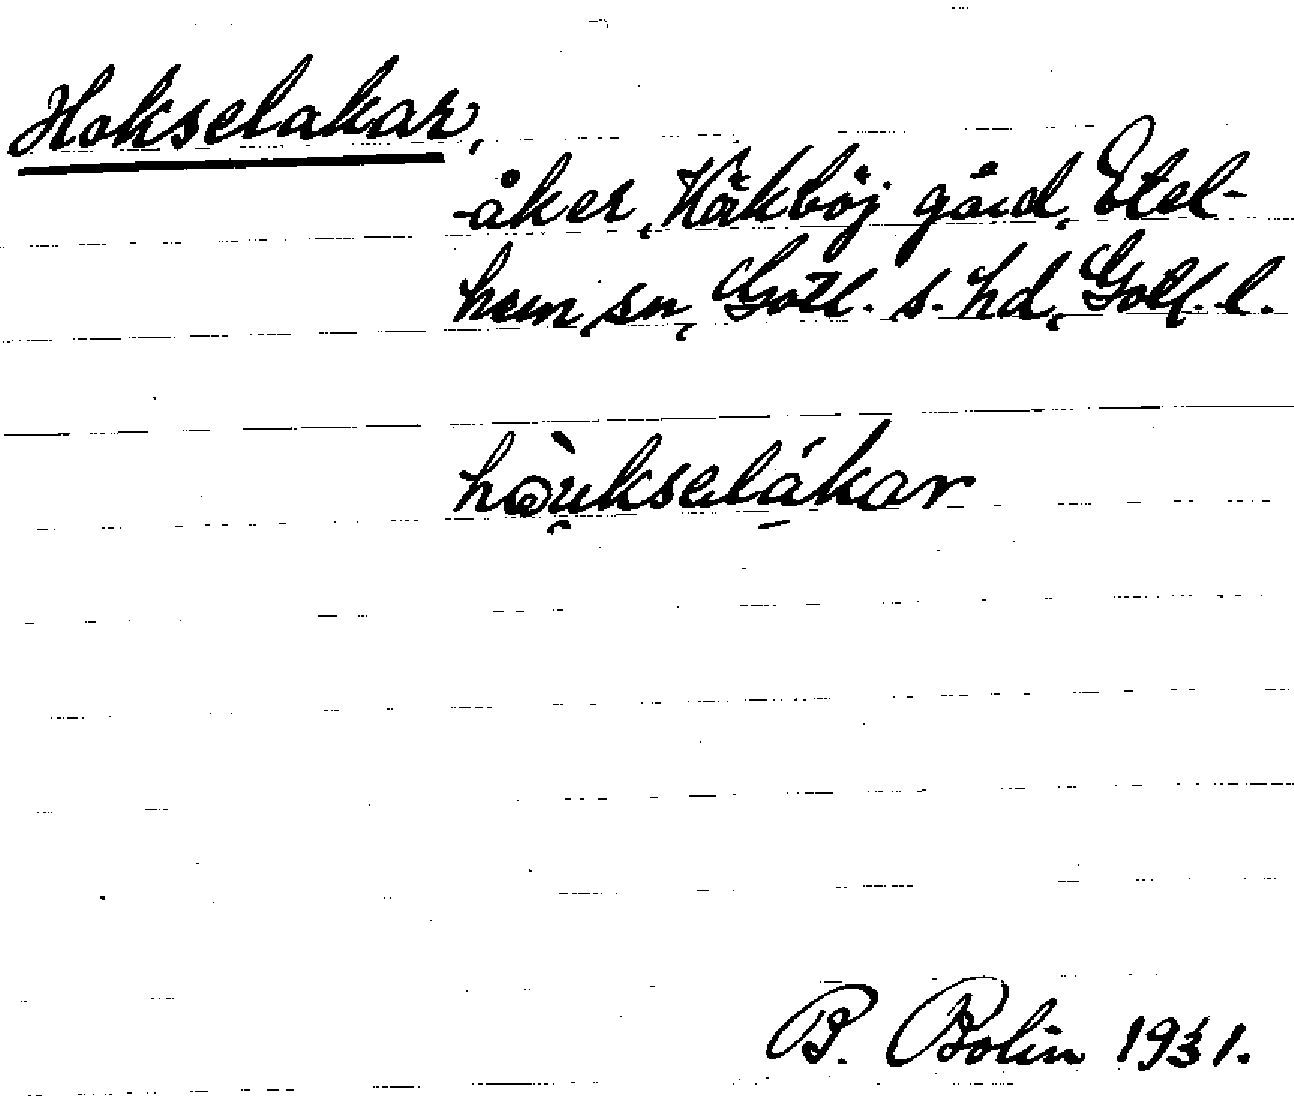 Hokselakar,
åker, Håkböj gård, Etel-
hem sn, Gotl. s. hd, Gotl. l.
hòu̯kselákar
B. Bolin 1931.